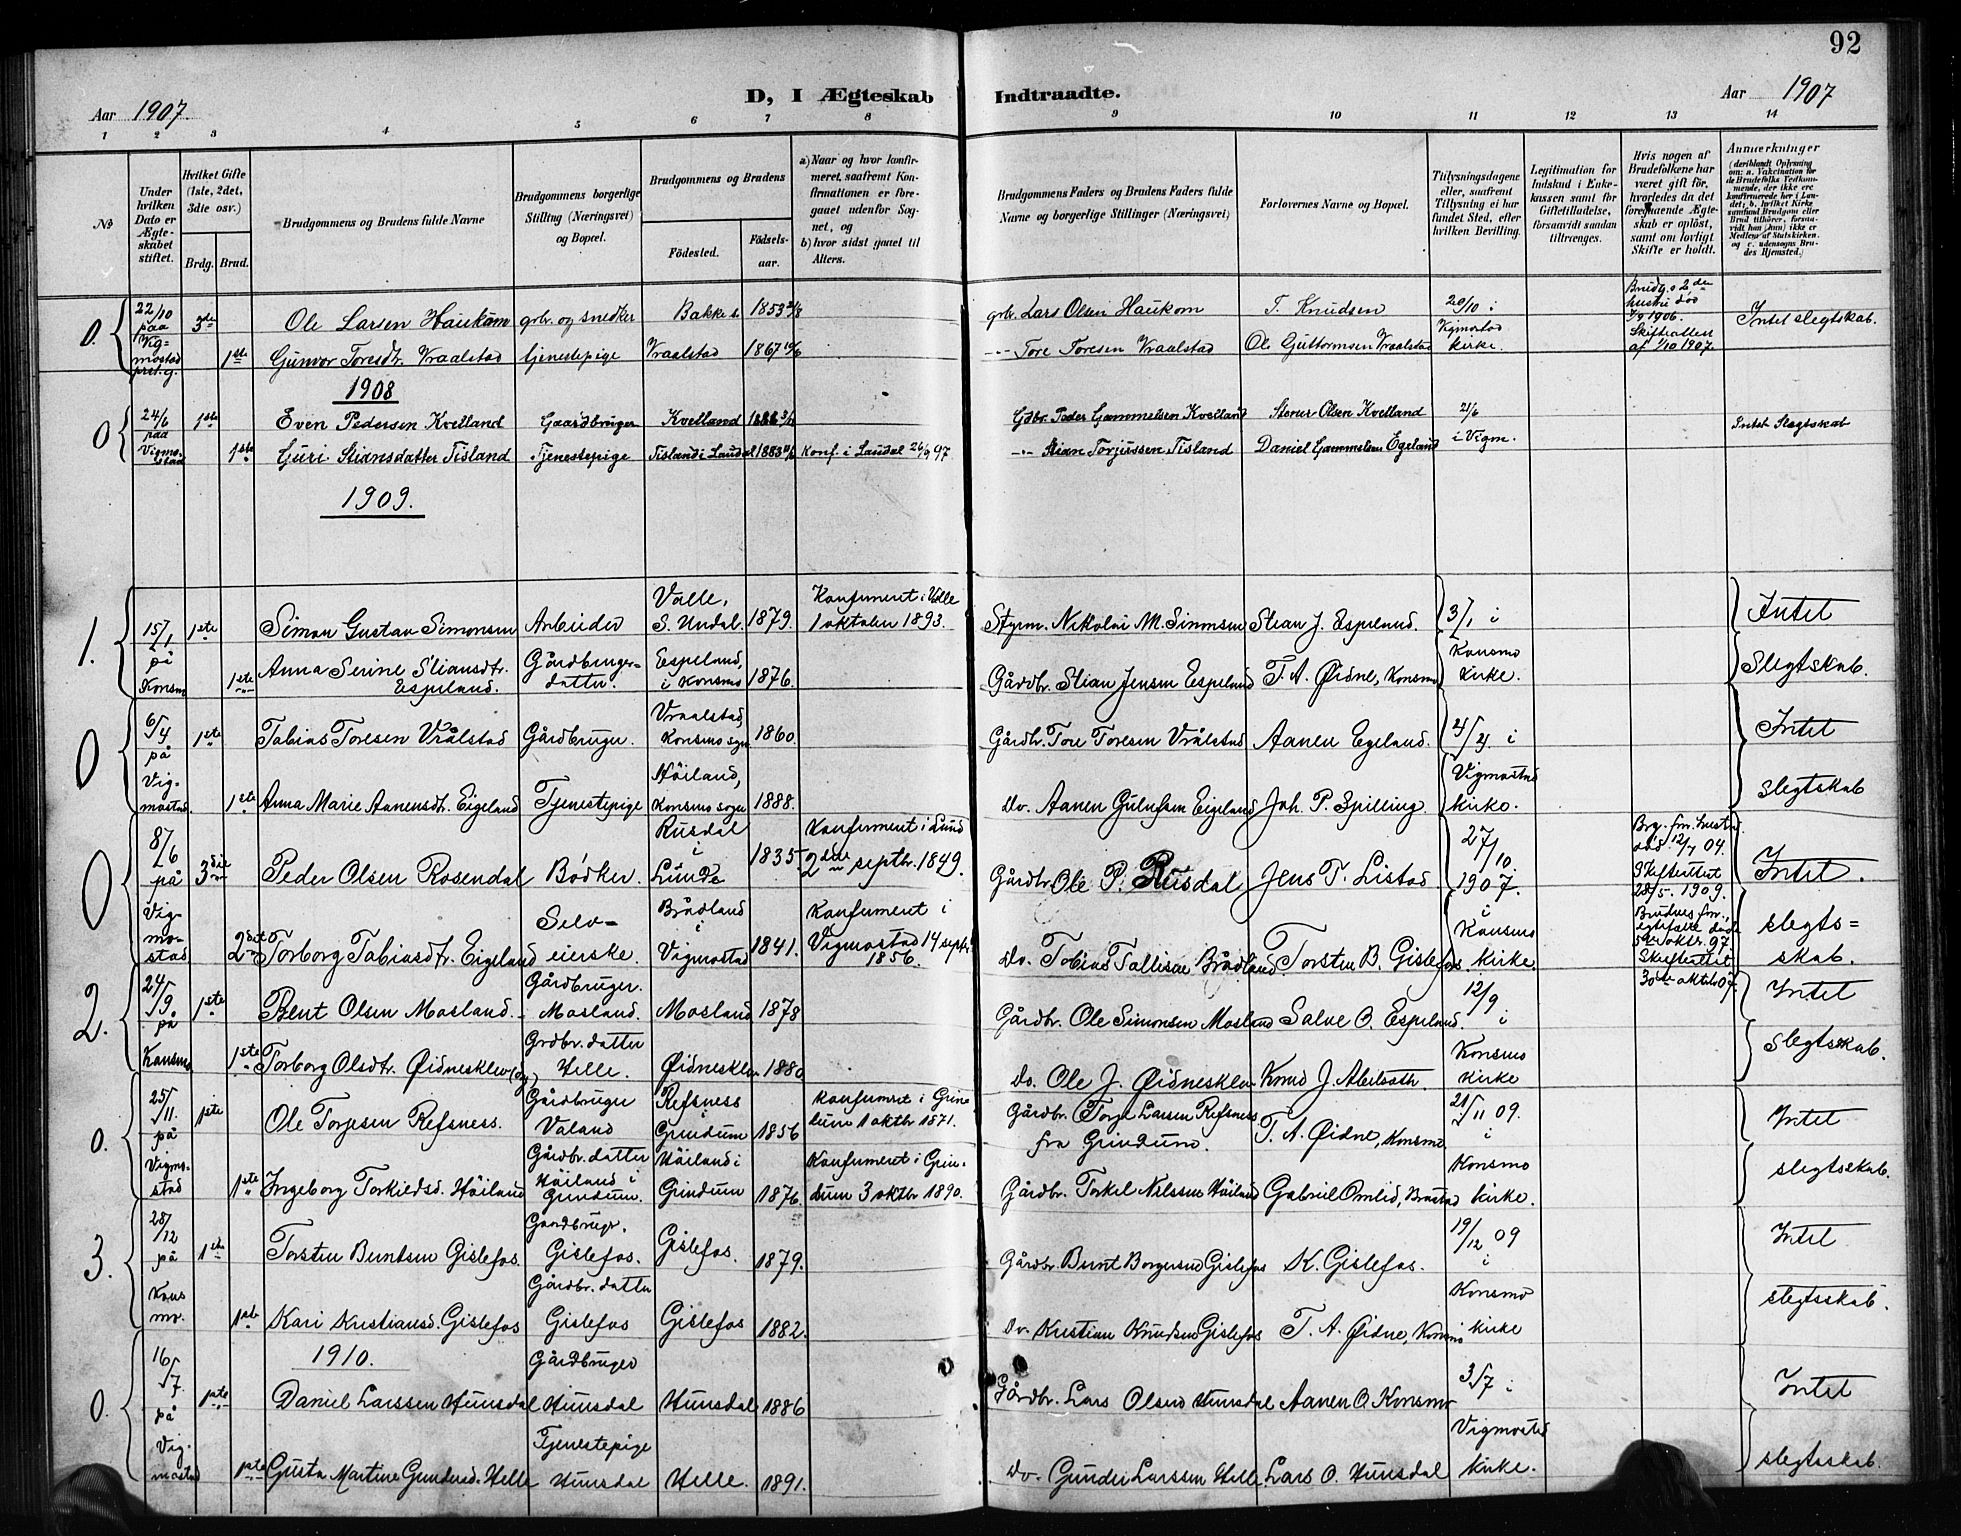 92
D, I Ægteskab Indtraadte.
Aar 1907.
Aar 1907
1 2 3 4 5 6 7 8 9 10 11 12 13 14
No
Under hvilken Dato er Ægteskabet stiftet.
Hvilket Gifte (1ste, 2det, 3die osv.)
Brdg. Brud.
Brudgommens og Brudens fulde Navne
Brudgommens borgerlige Stilling (Næringsvei) og Bopæl.
Brudgommens og Brudens
Fødested. Fødselsaar.
a) Naar og hvor konfirmeret, saafremt Konfirmationen er foregaaet udenfor Sognet, og
b) hvor sidst gaaet til Alters.
Brudgommens Faders og Brudens Faders fulde Navne og borgerlige Stillinger (Næringsvei)
Forlovernes Navne og Bopæl.
Tillysningsdagene eller, saafremt Tillysning ei har fundet Sted, efter hvilken Bevilling.
Legitimation for Indskud i Enkekassen samt for Giftetilladelse, forsaavidt saadan tiltrænges.
Hvis nogen af Brudefolkene har været gift før, hvorledes da det foregaaende Ægteskab er opløst, samt om lovligt Skifte er holdt.
Anmerkninger
(deriblandt Oplysning om: a. Vakcination for de Brudefolks Vedkommende, der ikke ere konfirmerede her i Landet; b. hvilket Kirkesamfund Brudgom eller Brud tilhører, forsaavidt han (hun) ikke er Medlem af Statskirken og c. udensogns Brudes Hjemsted.)
0. 22/10 paa Vigmostad prstg. 3die Ole Larsen Haukom grbr. og snedker Bakke s. 1853 grbr. Lars Olsen Haukom T. Knudsen 20/10 i Vigmostad kirke. Brudg.s 2den hustru død 1/9 1906. Skifteattest af 1/10 1907. Intet slegtskab.
1ste Gunvor Toresdtr. Vraalstad tjenestepige Vraalstad 1867 -"- Tore Toresen Vraalstad Ole Guttormsen Vraalstad
1908
0 24/6 paa Vigmostad 1ste Even Pedersen Kvelland Gaardbruger Kvelland Gdbr. Peder Gammelsen Kvelland Sterur Olsen Kvelland 21/6 i Vigm. Intet Slegtskab
1ste Guri Stiansdatter Tisland Tjenestepige Tisland i Laudal 1883 Konf. i Laudal 26/9 97 -"- Stian Torjussen Tisland Daniel Gammelsen Egeland
1909.
1. 15/1 på Konsmo 1ste Simon Gustav Simonsen Arbeider Valle, S. Undal. 1879. Konfirmeret i Valle 1 oktober 1893. Styrm. Nikolai M. Simonsen Stian J. Espeland. 3/1 i Konsmo kirke. Intet Slegtskab.
1ste Anna Serine Stiansdtr. Espeland. Gårdbrugerdatter. Espeland, i Konsmo 1876. Gårdbr. Stian Jensen Espeland T. A. Øidne, Konsmo
0 6/4 på Vigmostad 1ste Tobias Toresen Vrålstad Gårdbruger. Vraalstad, Konsmo sogn 1860. Gårdbr. Tore Toresen Vrålstad Aanen Egeland. 4/4 i Vigmostad kirke. Intet slegtskab
1ste Anna Marie Aanensdtr. Eigeland Tjenestepige Höiland, Konsmo sogn 1888. do. Aanen Eigeland Joh. P. Spilling.
0 8/6 på Vigmostad 3die Peder Olsen Rosendal Bödker. Rusdal i Lunde 1835 Konfirmeret i Lund 2den septbr. 1849. Gårdbr. Ole P. Rusdal Jens T. Listad 27/10 1907. i Konsmo kirke. Brg. frr. hustru død 12/7 04. Skifteattest 28/5. 1909. Intet slegtsskab.
2det Torborg Tobiasdtr. Eigeland Selveierske. Brådland i Vigmostad 1841. Konfirmeret i Vigmostad 14 septbr 1856. do. Tobias Tallisen Brådland Torsten B. Gislefos. Brudens frr. egtefælle døde 5te oktr. 97 Skifteattest 30te oktb 07
2. 24/9. på Konsmo 1ste Bent Olsen Mosland. Gårdbruger. Mosland. Mosland 1878 Gårdbr. Ole Simonsen Mosland Salve O. Espeland 12/9 i Konsmo kirke Intet Slegtskab.
1ste Torborg Olsdtr. Øidnesklev Grdbr. datter Helle. Øidnesklev 1880 do. Ole J. Øidnesklev Konrad J. Abelseth
0. 25/11 på Vigmostad 1ste Ole Torjesen Refsness. Gårdbruger Valand Refsness i Grindum 1856 Konfirmeret i Grindum 1 oktbr 1871. Gårdbr. Torje Larsen Refsness fra Grindum T. A. Øidne, Konsmo 21/11 09. i Konsmo kirke. Intet slegtsskab.
1ste Ingeborg Torkieldsd. Höiland Gårdbr. datter Höiland i Grindum. Höiland i Grindum 1876. Konfirmeret i Grindum 3 oktbr 1890. Gårdbr. Torkel Nilssen Höiland Gabriel Omlid, Bråstad
3. 28/12 på Konsmo. 1ste Torsten Berntsen Gislefos. Gardbrugr. Gislefos. Gislefos. 1879. Gårdbr. Bernt Borgersen Gislefos K. Gislefos. 19/12 09 i Konsmo kirke Intet slegtsskab.
1ste Kari Kristiansd. Gislefos Gårdbr. datter Gislefos Gislefos 1882. do. Kristian Knudsen Gislefos T. A. Øidne, Konsmo
1910.
0. 16/7. på Vigmostad 1ste Daniel Larssen Hunsdal Gårdbruger Hunsdal Hunsdal 1886 Gårdbr. Lars Olsen Hunsdal Aanen O. Konsmo 3/7 i Vigmostad kirke. Intet slegtsskab.
1ste Gusta Martine Gundersd. Helle Tjenestepige Hunsdal Helle. 1891. do. Gunder Larssen Helle. Lars O. Hunsdal